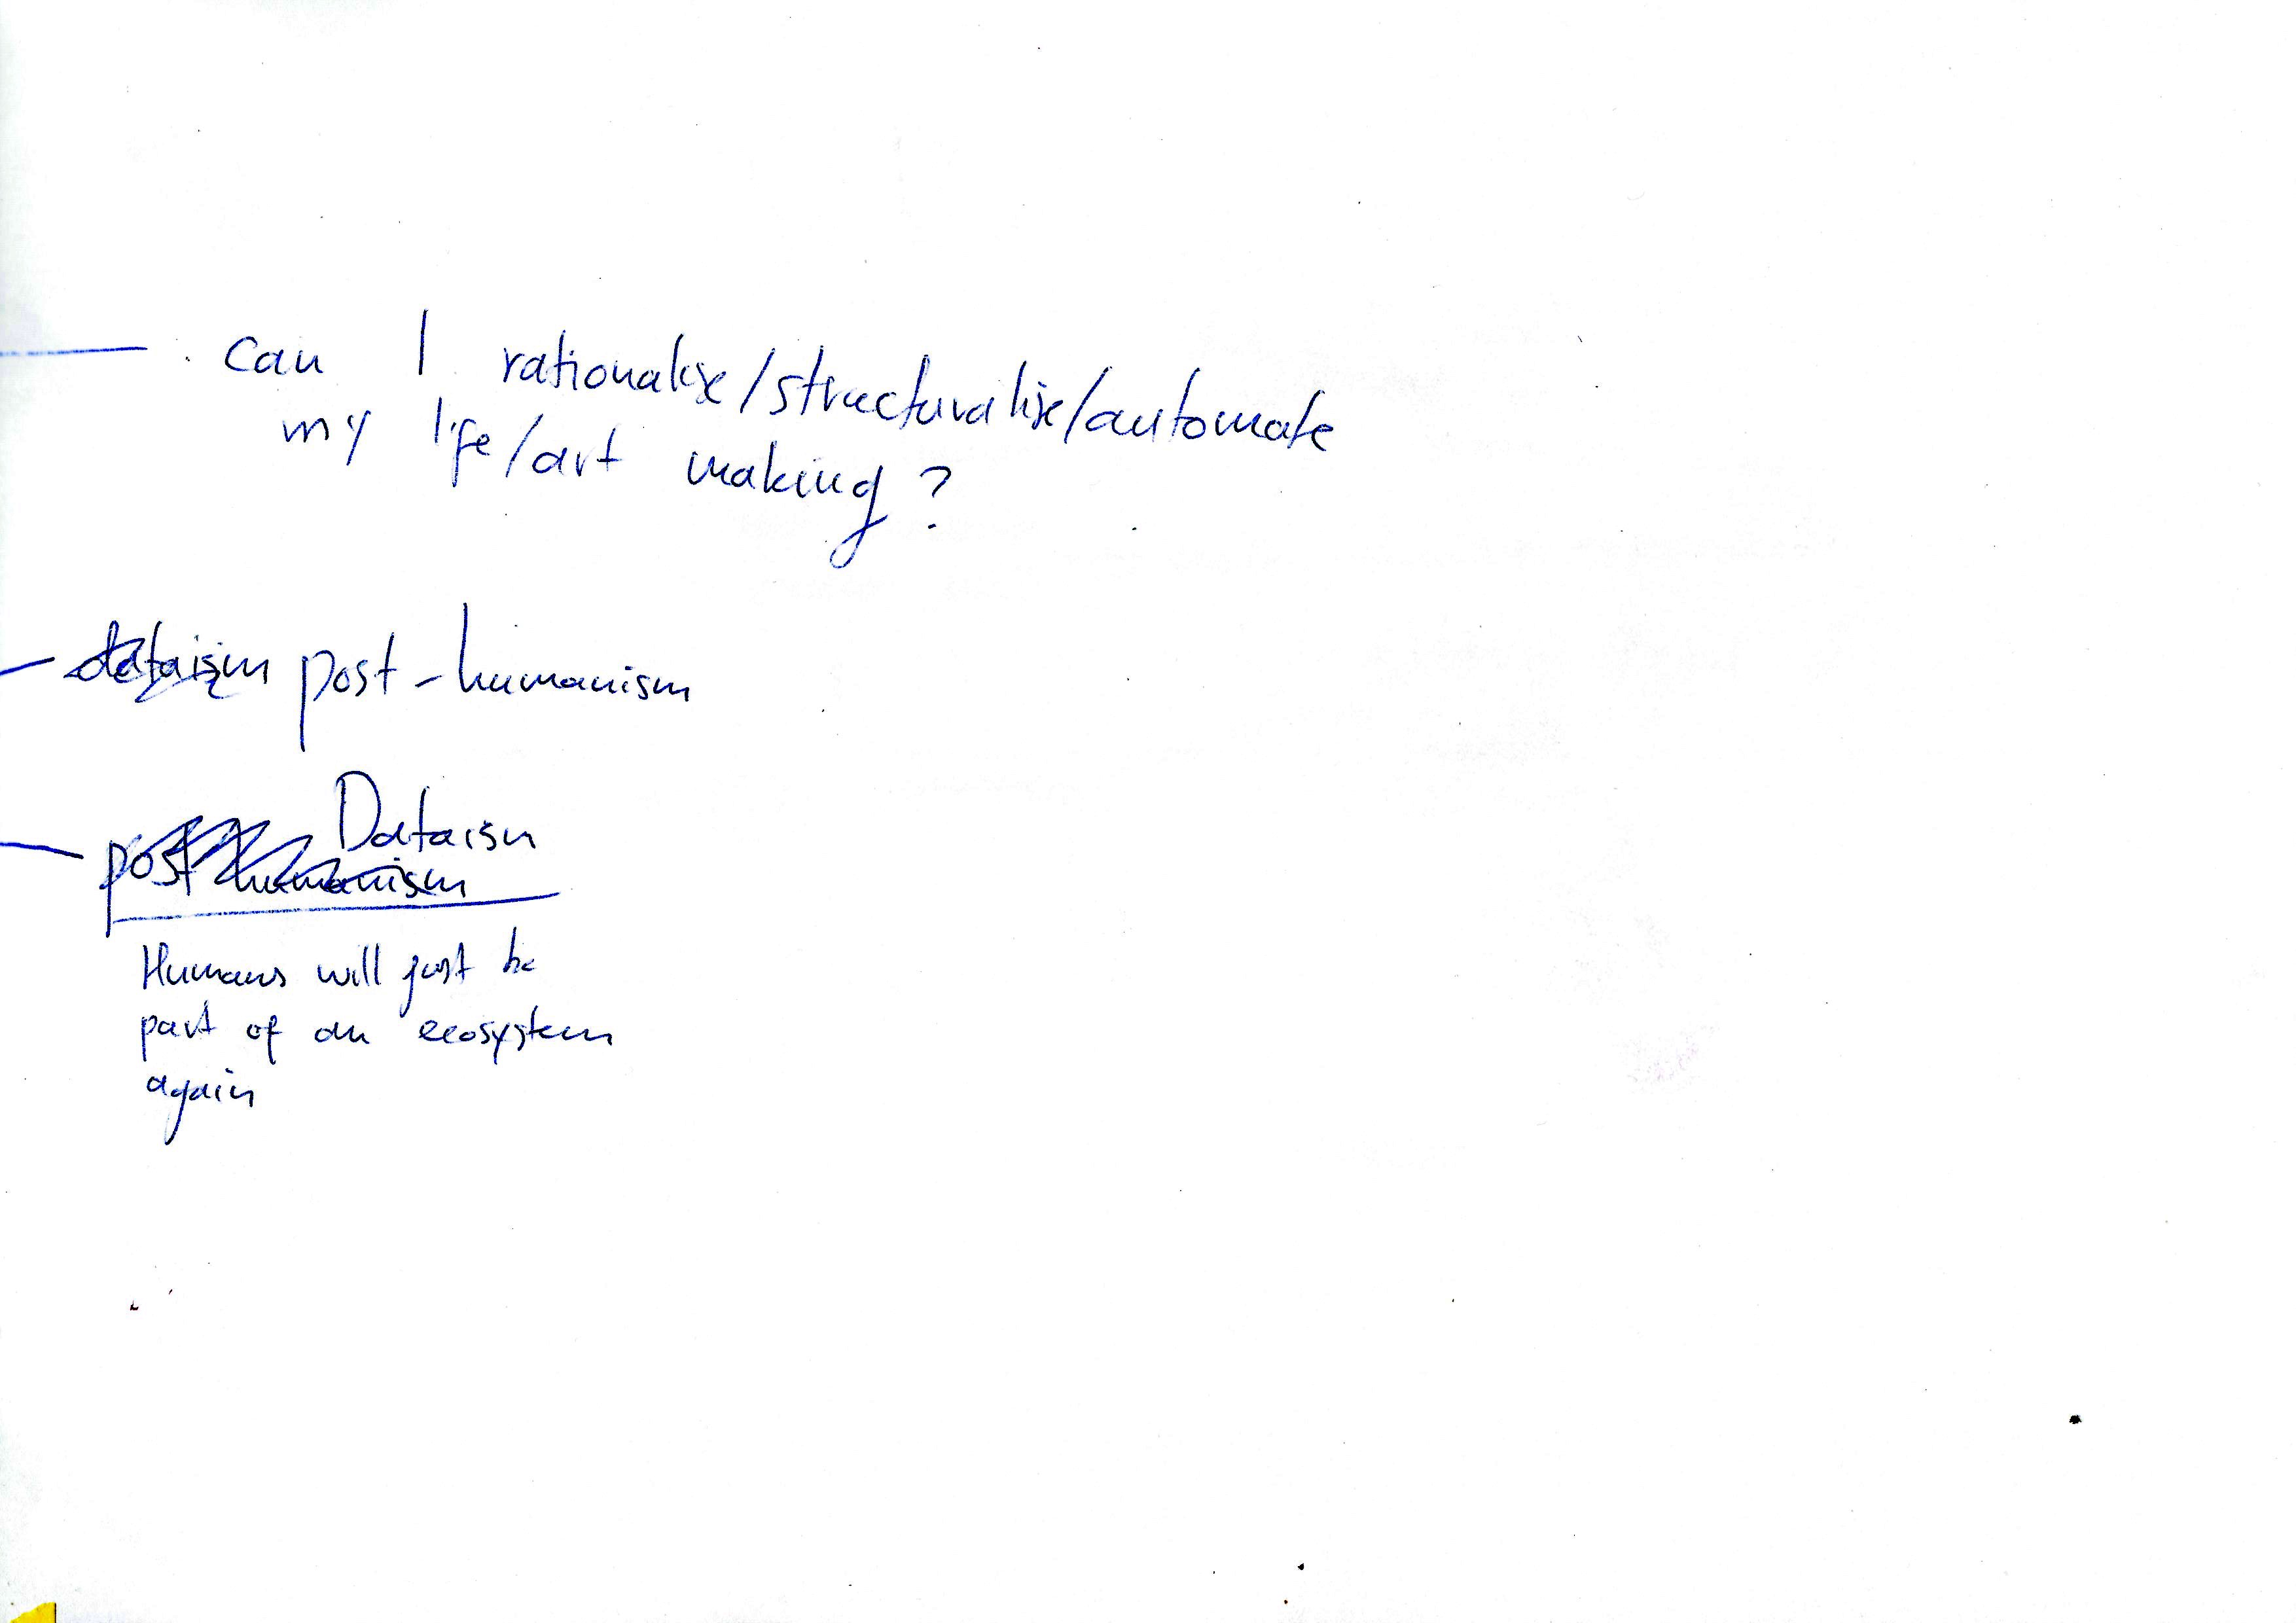 can I rationalise/structuralise/automate
my life/art making ?
dataism post-humanism
Dataism
post humanism
Humans will just be
part of an ecosystem
again